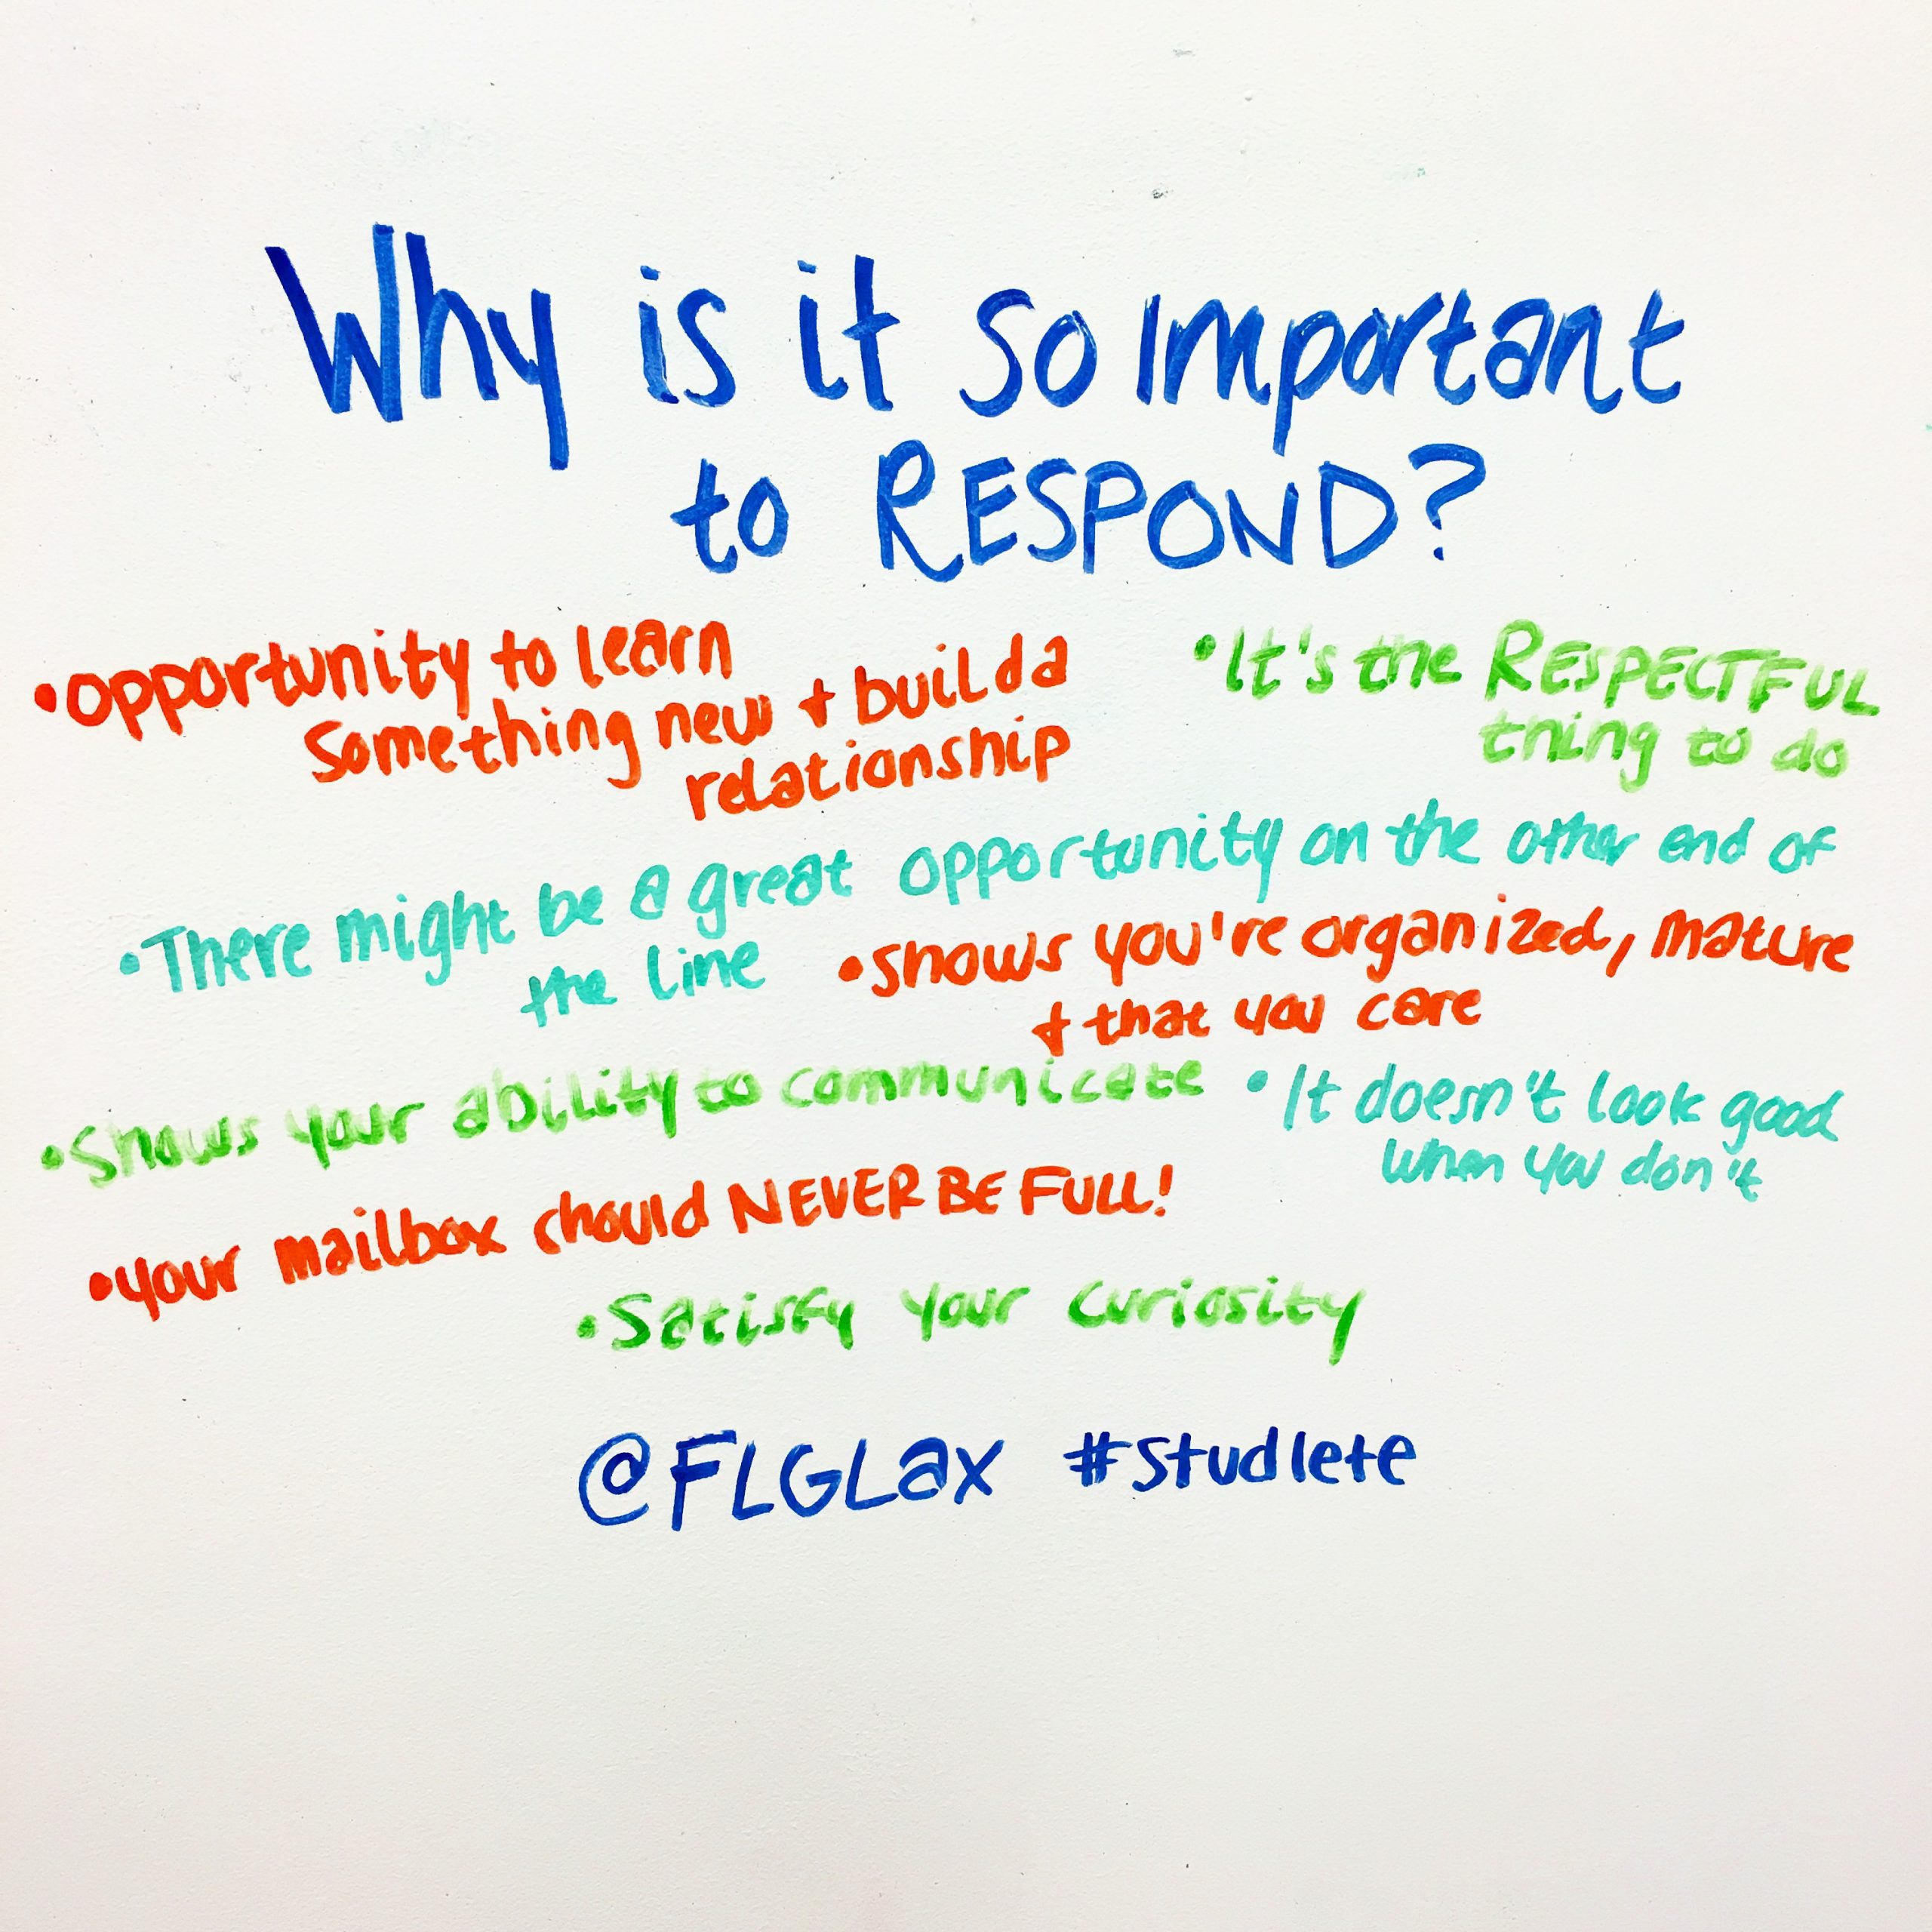 Why is it so important
to RESPOND?
• opportunity to learn
something new + build a
relationship
• It's the RESPECTFUL
thing to do
• There might be a great opportunity on the other end of
the line
• shows you're organized, mature
+ that you care
• Shows your ability to communicate
• It doesn't look good
when you don't
• your mailbox should NEVER BE FULL!
• Satisfy your curiosity
@FLGLax #studlete